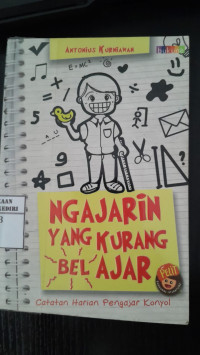 ANTONIUS KURNIAWAN
E=MC²
NGAJARIN
YANG KURANG
BEL AJAR
Full
Catatan Harian Pengajar Konyol